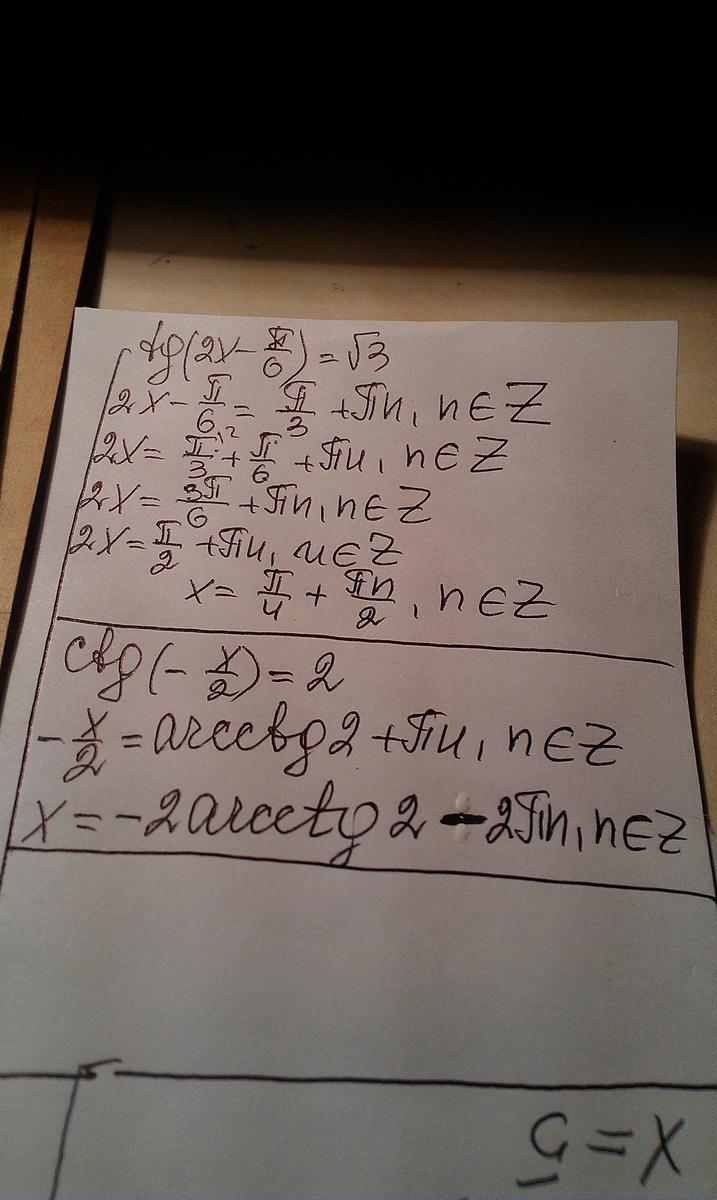 tg(2x - π/6) = √3
2x - π/6 = π/3 + πn, n ∈ Z
2x = π/3 \2 + π/6 + πn, n ∈ Z
2x = 3π/6 + πn, n ∈ Z
2x = π/2 + πn, n ∈ Z
x = π/4 + πn/2, n ∈ Z
ctg(- x/2) = 2
- x/2 = arcctg 2 + πn, n ∈ Z
x = -2 arcctg 2 - 2πn, n ∈ Z